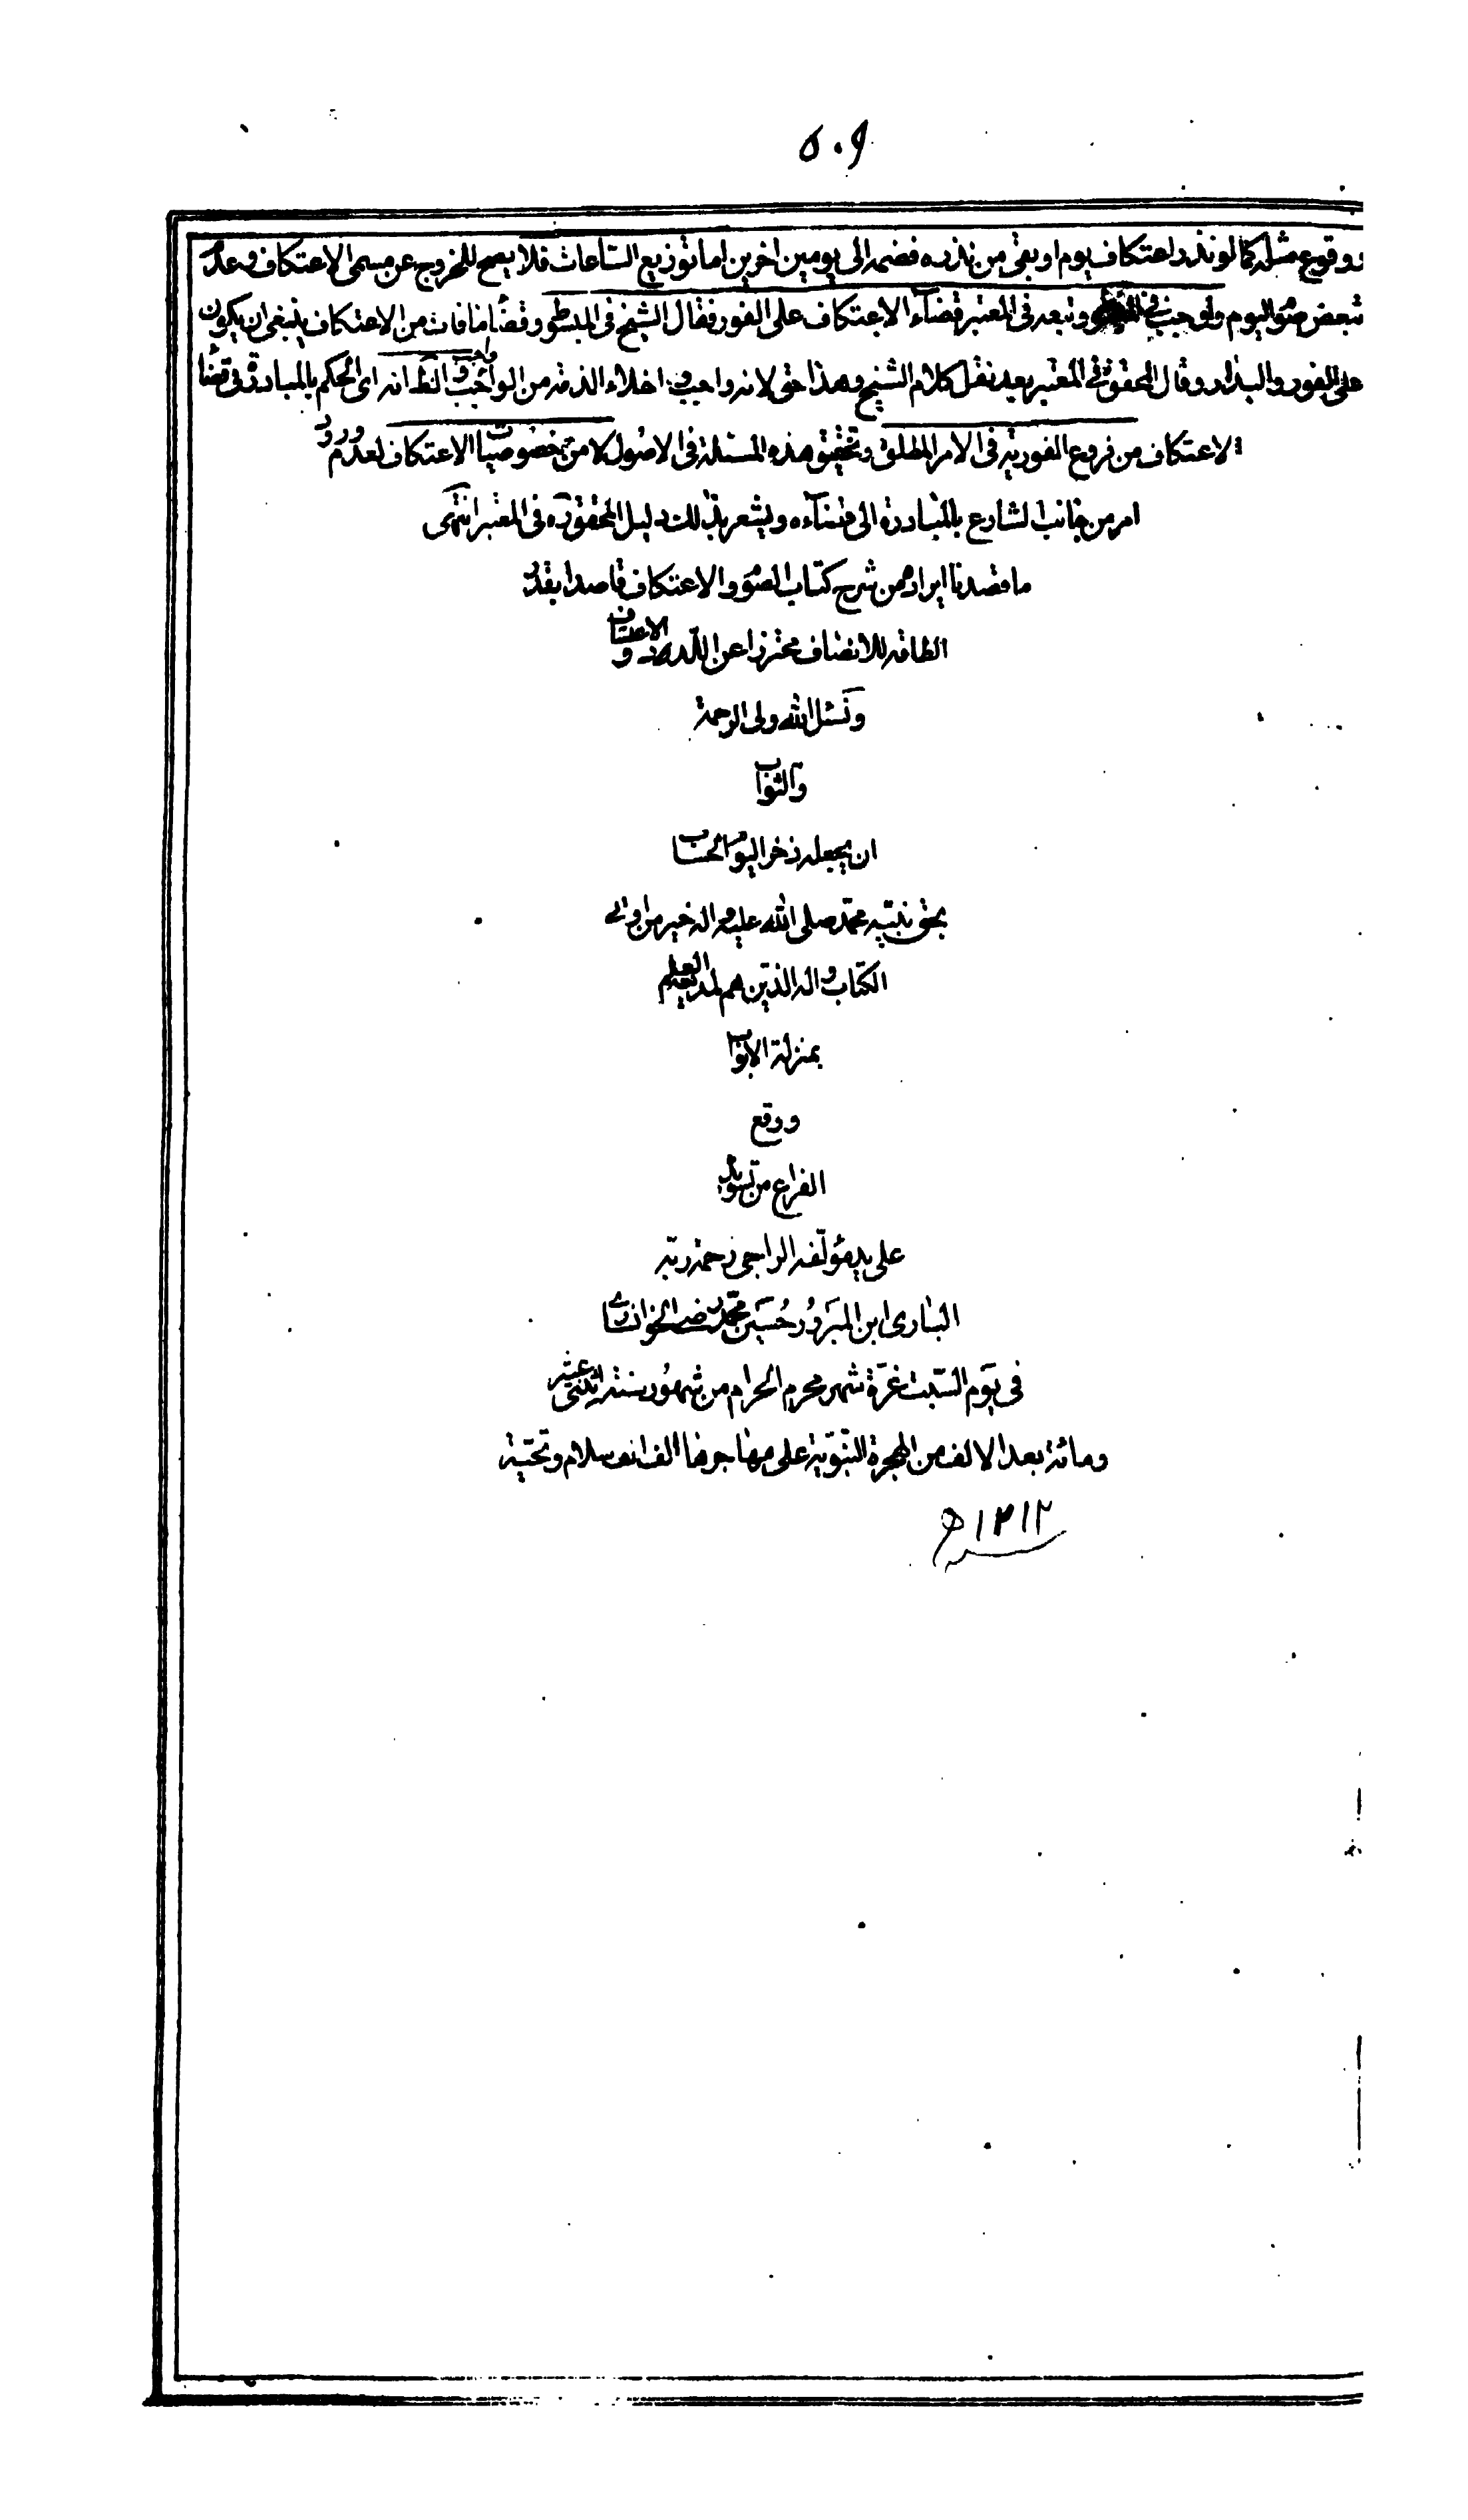 ٥٠٩
ووقوع مثله كما لو نذر اعتكاف يوم او بقى من نذره فضمه الى يومين اخرين اما توزيع الساعات فلا يصح للخروج عن مسمى الاعتكاف وعدم
تبعض صوم اليوم واوجب وتبعه فى المعتبر قضاء الاعتكاف على الفور فقال الشيخ فى المبسوط وقضاء ما فات من الاعتكاف ينبغى ان يكون
على الفور والبدار وقال المحقق فى المعتبر بعد نقل كلام الشيخ وهذا حق لانه واجب و اخلاء الذمة من الواجب واجب والظ انه اى الحكم بالمبادرة فى قضاء
الاعتكاف من فروع الفورية فى الامر المطلق وتحقيق هذه المسئلة فى الاصول لا من خصوصيات الاعتكاف لعدم ورود
امر من جانب الشارع بالمبادرة الى قضاءه ويشعر بذلك دليل المحقق ره فى المعتبر انتهى
ما قصدنا ايراده من شرح كتاب الصوم والاعتكاف قاصدا بقدر
الطاقة للانصاف محترزا عن اللدد و الاعتساف
ونسئل الله ولى الرحمة
والثواب
ان يجعله ذخرا ليوم الحساب
بحق نبيه محمد صلى الله عليه واله خير من اوتى
الكتاب و اله الذين هم لمدينة العلم
بمنزلة الابواب
ووقع
الفراغ من تسويد
على يد مؤلفه الراجى رحمة ربه
البارى ابن المبرور حسين محمد رضى الخوانسارى
فى يوم السبت غرة شهر محرم الحرام من شهور سنة اثنتى عشر
ومائة بعد الالف من الهجرة النبوية على مهاجرها الف الف سلام وتحية
١٣١٢ ه